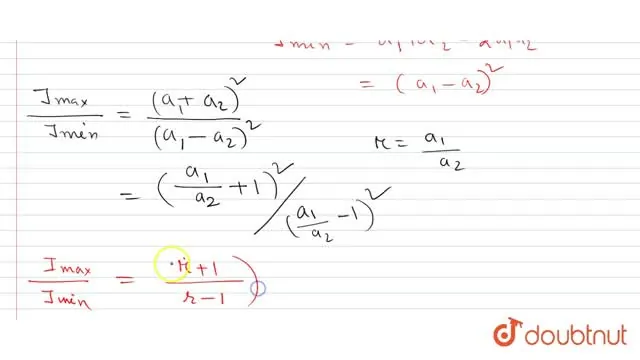 I min = a₁² + a₂² - 2a₁a₂
= (a₁ - a₂)²
Imax / Imin = (a₁ + a₂)² / (a₁ - a₂)²
r = a₁ / a₂
= (a₁/a₂ + 1)² / (a₁/a₂ - 1)²
Imax / Imin = r + 1 / r - 1 )
doubtnut